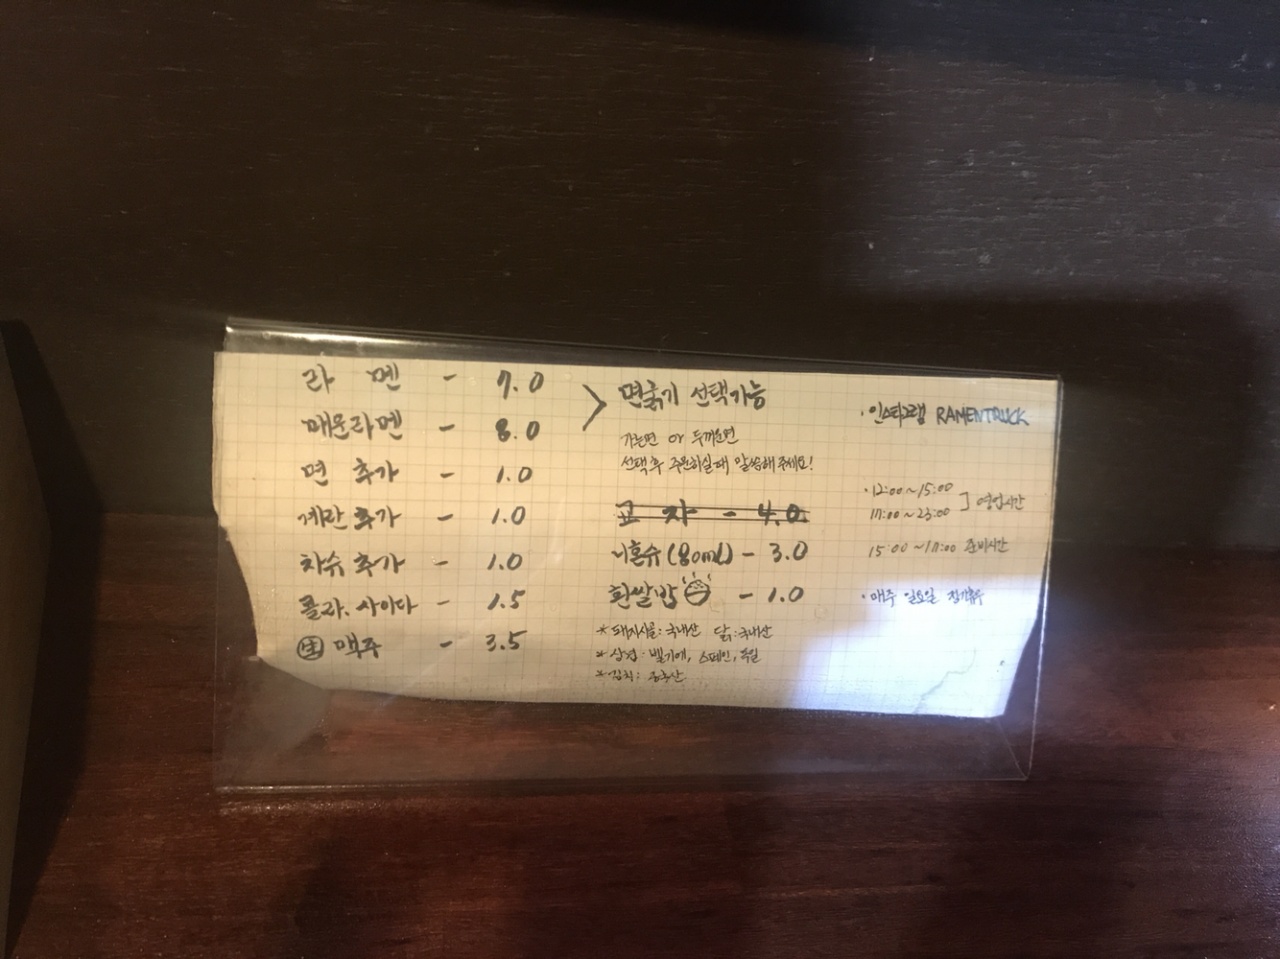 라 멘 - 7.0
매운라멘 - 8.0
면 추가 - 1.0
계란 추가 - 1.0
차슈 추가 - 1.0
콜라. 사이다 - 1.5
生 맥주 - 3.5
면굵기 선택가능
가는면 or 두꺼운면
선택후 주문하실때 말씀해주세요!
교 자 - 4.0
니혼슈 (80ml) - 3.0
흰쌀밥 - 1.0
* 돼지사골: 국내산 닭: 국내산
* 삼겹: 벨기에, 스페인, 독일
* 김치: 중국산
· 인스타그램 RAMENTRUCK
· 12:00~15:00
17:00~23:00 ] 영업시간
15:00~17:00 준비시간
· 매주 일요일 정기휴무